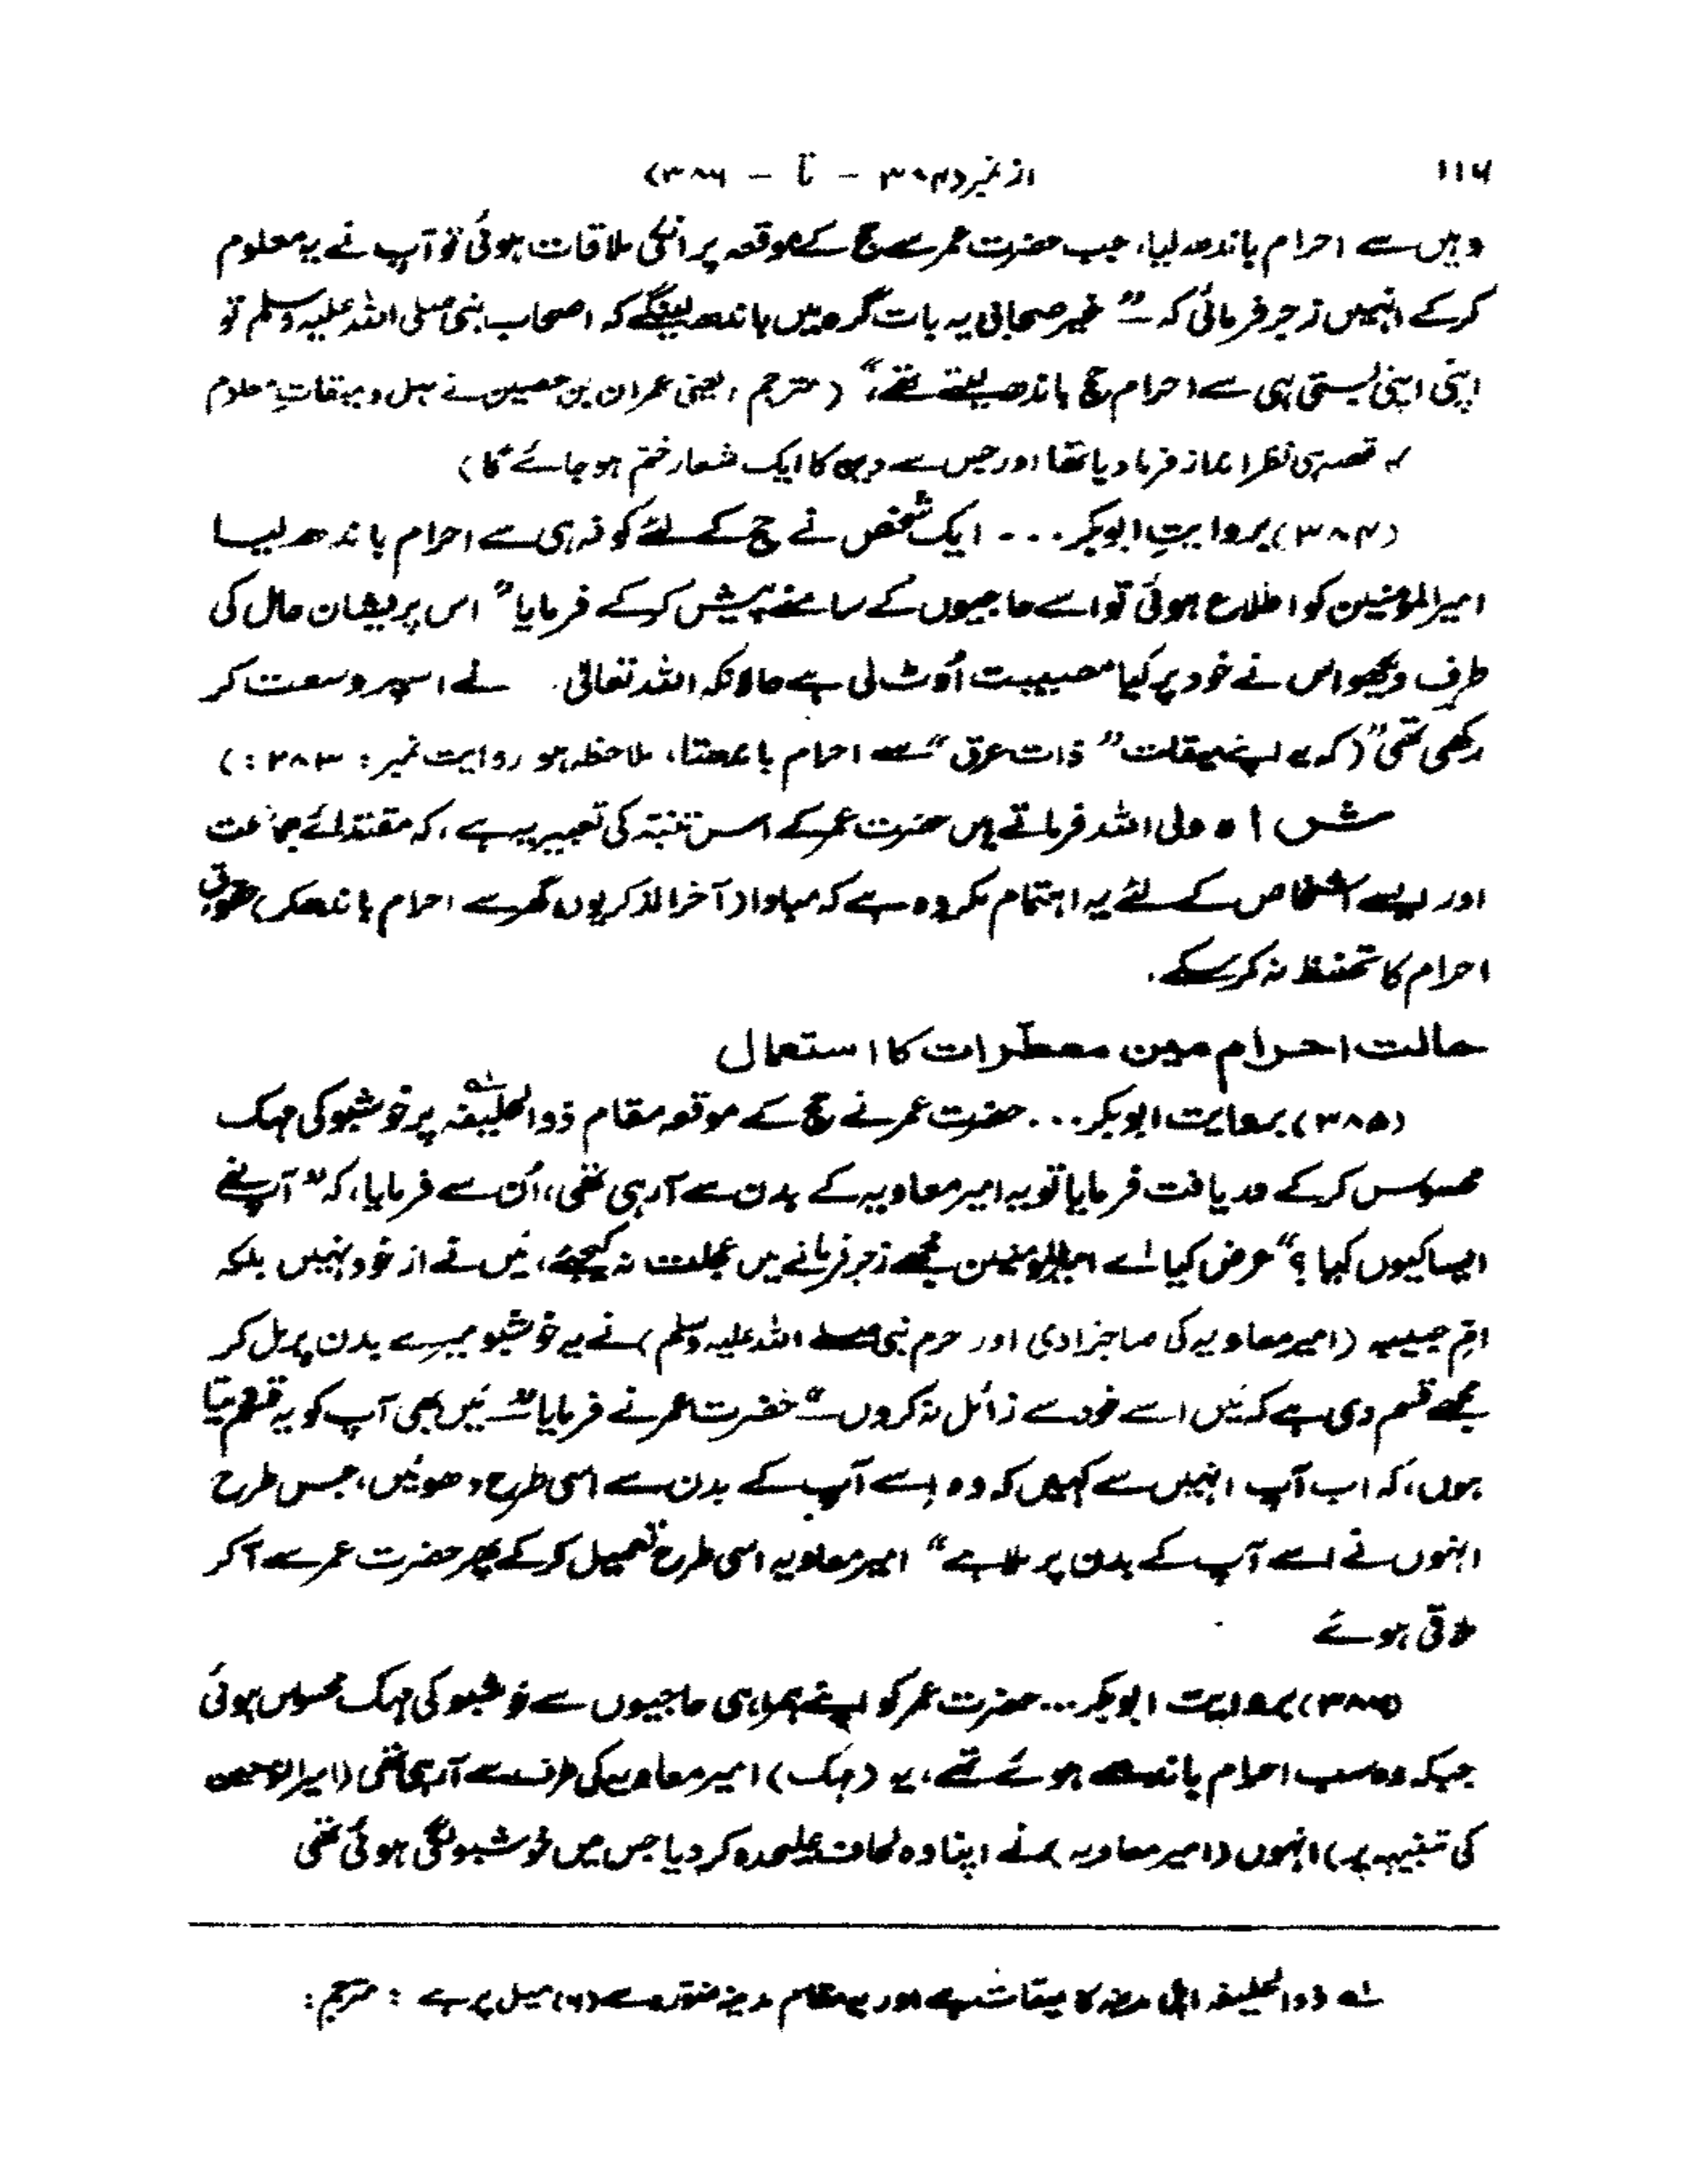 ۱۱۶ از نمبر (۳۸۴ - تا - ۳۸۶)
وہیں سے احرام باندھ لیا، جب حضرت عمر سے حج کے موقعہ پر انکی ملاقات ہوئی تو آپ نے یہ معلوم
کرکے انہیں زجر فرمائی کہ ـ" غیر صحابی یہ بات گرہ میں باندھ لینگے کہ اصحاب نبی صلی اللہ علیہ وسلم تو
اپنی اپنی بستی ہی سے احرام حج باندھ لیتے تھے،" (مترجم، یعنی عمران بن حصین نے میقات معلوم
قصدہی نظر انداز فرما دیا تھا اور جس سے دین کا ایک شعار ختم ہو جائے گا)
(۳۸۴) بروایتِ ابوبکر ... ایک شخص نے حج کے لئے کوفہ ہی سے احرام باندھ لیا
امیر المؤمنین کو اطلاع ہوئی تو اسے حاجیوں کے سامنے پیش کرکے فرمایا" اس پریشان حال کی
طرف دیکھو اس نے خود پر کیا مصیبت اوٹ لی ہے حالانکہ اللہ تعالیٰ نے اسپر وسعت کر
رکھی تھی" (کہ یہ اپنے میقات" ذات عرق" سے احرام باندھتا، ملاحظہ ہو روایت نمبر: ۳۸۳:)
شاہ ولی اللہ فرماتے ہیں حضرت عمر کے اس تنبہ کی تعبیر یہ ہے، کہ مقتدائے جماعت
اور ایسے اشخاص کے لئے یہ اہتمام مکروہ ہے کہ مبادا از آخر الذکر یوں گھر سے احرام باندھکر حقوقِ
احرام کا تحفظ نہ کر سکے.
حالت احرام مین معطّرات کا استعمال
(۳۸۵) بروایت ابوبکر ... حضرت عمر نے حج کے موقعہ مقام ذوالحلیفہ لہ پر خوشبو کی مہک
محسوس کرکے دریافت فرمایا تو یہ امیر معاویہ کے بدن سے آرہی تھی، اُن سے فرمایا، کہ" آپ نے
ایسا کیوں کیا ؟" عرض کیا اے امیرالمؤمنین مجھے زجر فرمانے میں عجلت نہ کیجئے، میں نے از خود نہیں بلکہ
امّ حبیبہ (امیر معاویہ کی صاحبزادی اور حرم نبی صلے اللہ علیہ وسلم) نے یہ خوشبو میرے بدن پر مل کر
مجھے قسم دی ہے کہ میں اسے خود سے زائل نہ کروں" حضرت عمر نے فرمایا" میں بھی آپ کو یہ قسم دیتا
ہوں، کہ اب آپ انہیں سے کہیں کہ وہ اسے آپ کے بدن سے اسی طرح دھوئیں، جس طرح
انہوں نے اسے آپ کے بدن پر ملا ہے" امیر معاویہ اسی طرح تعمیل کرکے پھر حضرت عمر سے آکر
ملاقی ہوئے
(۳۸۶) بروایت ابوبکر ... حضرت عمر کو اپنے ہمراہی حاجیوں سے خوشبو کی مہک محسوس ہوئی
جبکہ وہ سب احرام باندھے ہوئے تھے، یہ (مہک) امیر معاویہ کی طرف سے آرہی تھی (امیرالمومنین
کی تنبیہہ پر) انہوں (امیر معاویہ) نے اپنا وہ لحاف علیحدہ کر دیا جس میں خوشبو لگی ہوئی تھی
لہ ذوالحلیفہ اہل مدینہ کا میقات ہے اور یہ مقام مدینہ منورہ سے (۶) میل پر ہے : مترجم: